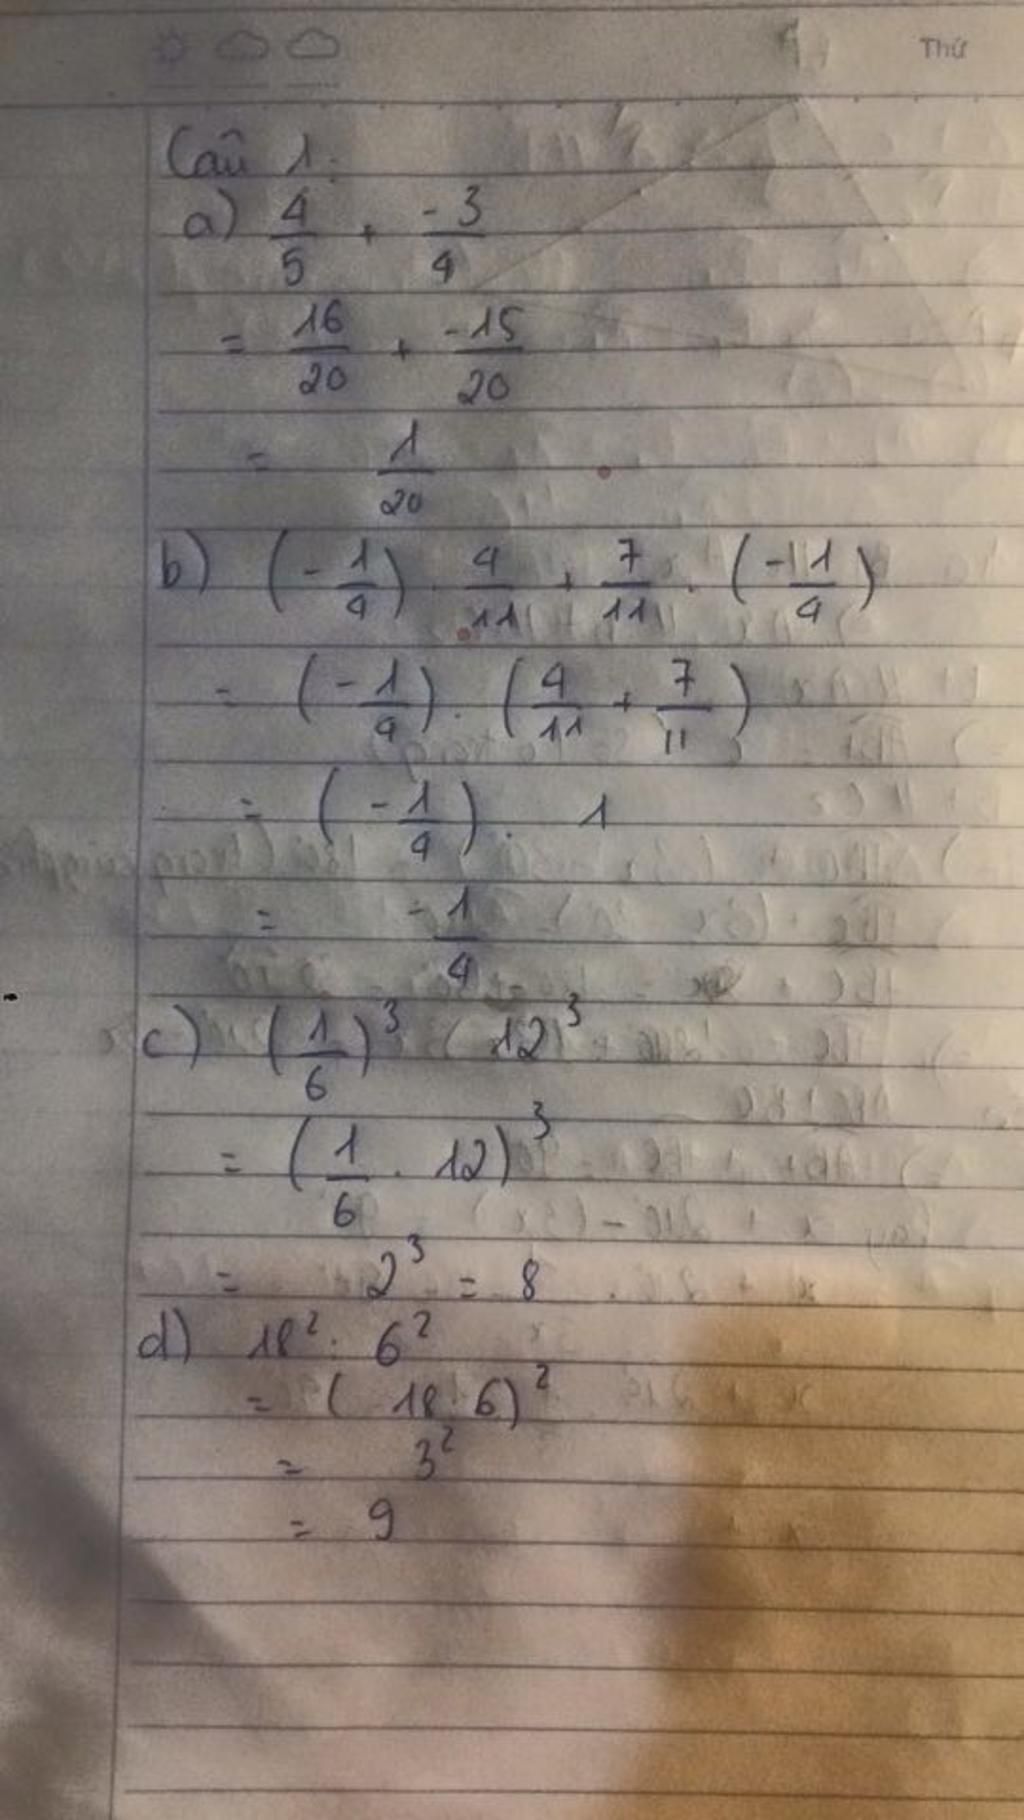 Thứ
Câu 1:
a) 4/5 + -3/4
= 16/20 + -15/20
= 1/20
b) (-1/4) . 4/11 + 7/11 . (-1/4)
= (-1/4) . (4/11 + 7/11)
= (-1/4) . 1
= -1/4
c) (1/6)³ . 12³
= (1/6 . 12)³
= 2³ = 8
d) 18² : 6²
= (18 : 6)²
= 3²
= 9